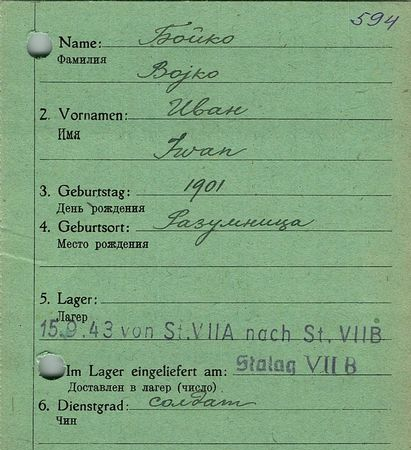 594
Name: Бойко
Фамилия
Bojko
2. Vornamen: Иван
Имя
Iwan
3. Geburtstag: 1901
День рождения
4. Geburtsort: Разумница
Место рождения
5. Lager:
Лагер
15.9.43 von St.VIIA nach St. VIIB
Im Lager eingeliefert am: Stalag VII B
Доставлен в лагер (число)
6. Dienstgrad: солдат
Чин